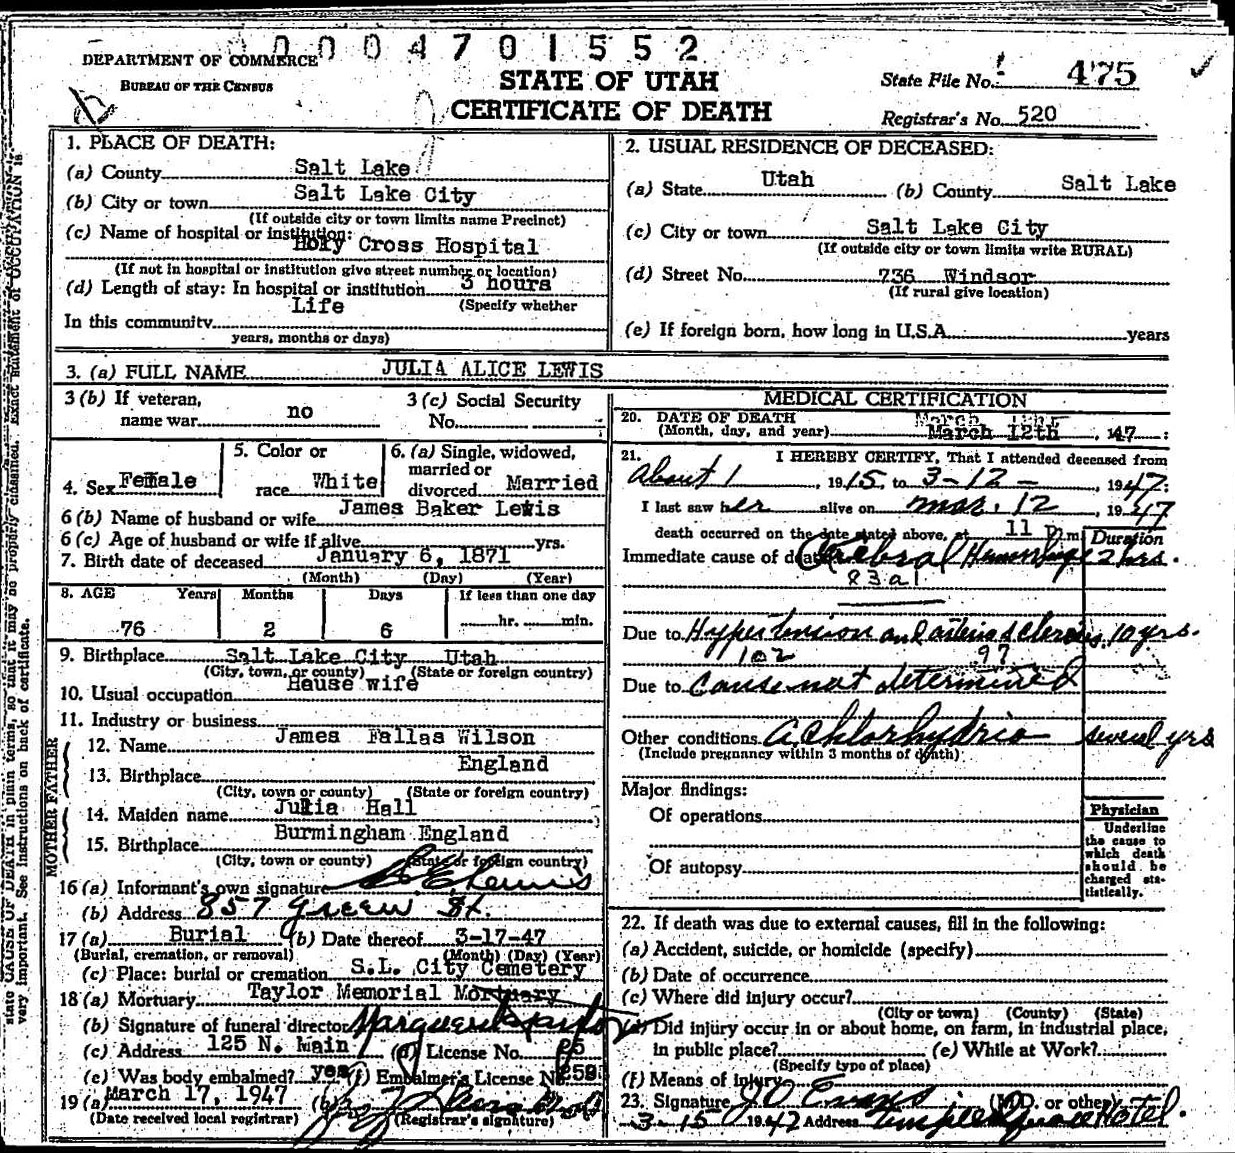 0004701552
DEPARTMENT OF COMMERCE
BUREAU OF THE CENSUS
STATE OF UTAH
CERTIFICATE OF DEATH
State File No. 475
Registrar's No. 520
1. PLACE OF DEATH:
(a) County Salt Lake
(b) City or town Salt Lake City
(If outside city or town limits name Precinct)
(c) Name of hospital or institution:
Holy Cross Hospital
(If not in hospital or institution give street number or location)
(d) Length of stay: In hospital or institution 3 hours
Life (Specify whether
In this community
years, months or days)
2. USUAL RESIDENCE OF DECEASED:
(a) State Utah (b) County Salt Lake
(c) City or town Salt Lake City
(If outside city or town limits write RURAL)
(d) Street No. 736 Windsor
(If rural give location)
(e) If foreign born, how long in U.S.A. years
3. (a) FULL NAME JULIA ALICE LEWIS
3 (b) If veteran, name war no
3 (c) Social Security No.
4. Sex Female
5. Color or race White
6. (a) Single, widowed, married or divorced Married
6 (b) Name of husband or wife James Baker Lewis
6 (c) Age of husband or wife if alive yrs.
7. Birth date of deceased January 6, 1871
(Month) (Day) (Year)
8. AGE Years Months Days If less than one day
76 2 6 hr. min.
9. Birthplace Salt Lake City Utah
(City, town, or county) (State or foreign country)
10. Usual occupation House wife
11. Industry or business
FATHER
12. Name James Fallas Wilson
13. Birthplace England
(City, town or county) (State or foreign country)
MOTHER
14. Maiden name Julia Hall
15. Birthplace Burmingham England
(City, town or county) (State or foreign country)
16 (a) Informant's own signature Lewis
(b) Address 857 Green St.
17 (a) Burial (b) Date thereof 3-17-47
(Burial, cremation, or removal) (Month) (Day) (Year)
(c) Place: burial or cremation S.L. City Cemetery
18 (a) Mortuary Taylor Memorial Mortuary
(b) Signature of funeral director
(c) Address 125 N. Main (d) License No.
(e) Was body embalmed? yes (f) Embalmer's License No.
19 (a) March 17, 1947 (b)
(Date received local registrar) (Registrar's signature)
MEDICAL CERTIFICATION
20. DATE OF DEATH
(Month, day, and year) March 12th, 1947
21. I HEREBY CERTIFY, That I attended deceased from
About 1, 1915, to 3-12-, 1947:
I last saw her alive on Mar. 12, 1947
death occurred on the date stated above, at 11 p.m.
Duration
Immediate cause of death Cerebral Hemorrhage 2 hrs.
83a1
Due to Hypertension and arteriosclerosis 10 yrs.
102 97
Due to cause not determined
Other conditions Achlorhydria several yrs
(Include pregnancy within 3 months of death)
Major findings:
Of operations
Of autopsy
Physician
Underline
the cause to
which death
should be
charged sta-
tistically.
22. If death was due to external causes, fill in the following:
(a) Accident, suicide, or homicide (specify)
(b) Date of occurrence
(c) Where did injury occur?
(City or town) (County) (State)
Did injury occur in or about home, on farm, in industrial place,
in public place? (e) While at Work?
(Specify type of place)
(f) Means of injury
23. Signature J O Evans (M.D. or other)
3-15 1947 Address Temple Square Hotel.
state CAUSE OF DEATH in plain terms, so that it may be properly classified. Exact statement of OCCUPATION is
very important. See instructions on back of certificate.